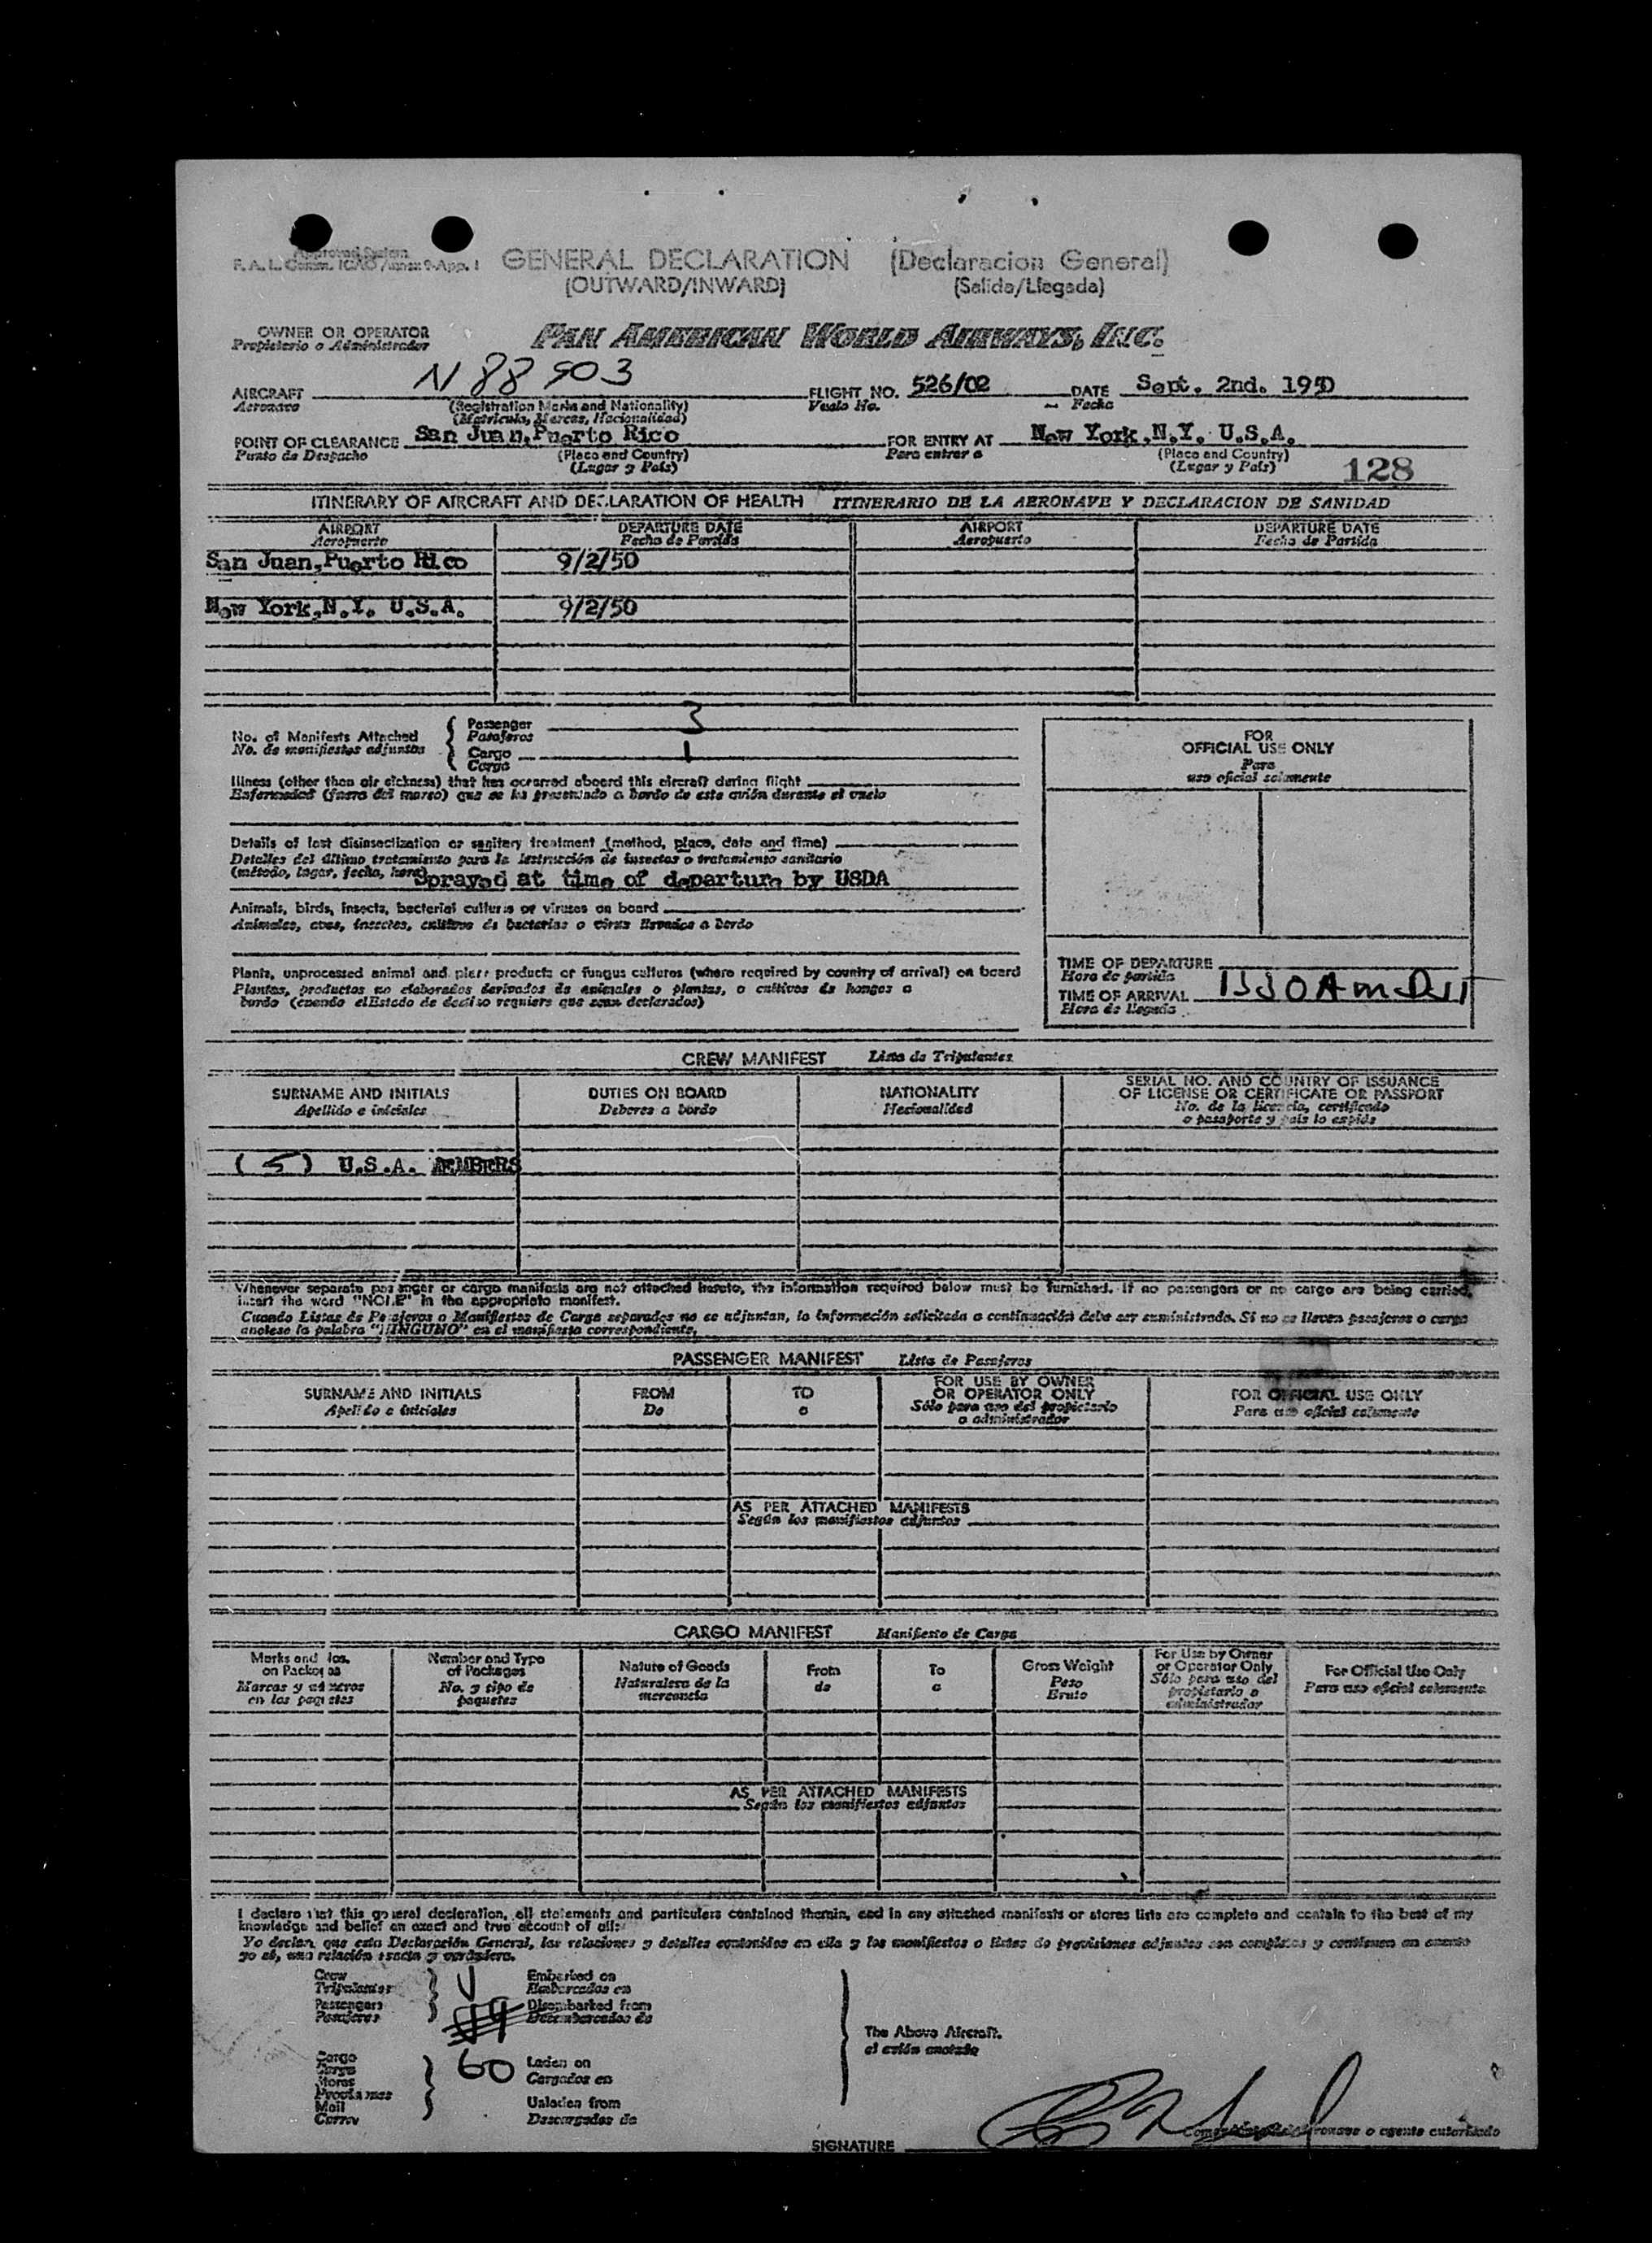 Approved System
F. A. L. Comm. ICAO Annex 9-App. 1
GENERAL DECLARATION (Declaracion General)
(OUTWARD/INWARD) (Salida/Llegada)
OWNER OR OPERATOR PAN AMERICAN WORLD AIRWAYS, INC.
Propietario o Administrador
AIRCRAFT N 88903 FLIGHT NO. 526/02 DATE Sept. 2nd. 1950
Aeronave (Registration Marks and Nationality) Vuelo No. Fecha
(Matricula, Marcas, Nacionalidad)
POINT OF CLEARANCE San Juan, Puerto Rico FOR ENTRY AT New York, N.Y. U.S.A.
Punto de Despacho (Place and Country) Para entrar a (Place and Country)
(Lugar y País) (Lugar y País) 128
ITINERARY OF AIRCRAFT AND DECLARATION OF HEALTH ITINERARIO DE LA AERONAVE Y DECLARACION DE SANIDAD
AIRPORT DEPARTURE DATE AIRPORT DEPARTURE DATE
Aeropuerto Fecha de Partida Aeropuerto Fecha de Partida
San Juan, Puerto Rico 9/2/50
New York, N.Y. U.S.A. 9/2/50
No. of Manifests Attached Passenger 3
No. de manifiestos adjuntos Pasajeros
Cargo 1
Carga
Illness (other than air sickness) that has occurred aboard this aircraft during flight
Enfermedad (fuera del mareo) que se ha presentado a bordo de este avión durante el vuelo
Details of last disinsectization or sanitary treatment (method, place, date and time)
Detalles del último tratamiento para la destrucción de insectos o tratamiento sanitario
(método, lugar, fecha, hora) Sprayed at time of departure by USDA
Animals, birds, insects, bacterial cultures or viruses on board
Animales, aves, insectos, cultivos de bacterias o virus llevados a bordo
Plants, unprocessed animal and plant products or fungus cultures (where required by country of arrival) on board
Plantas, productos no elaborados derivados de animales o plantas, o cultivos de hongos a
bordo (cuando el Estado de destino requiera que sean declarados)
FOR
OFFICIAL USE ONLY
Para
uso oficial solamente
TIME OF DEPARTURE
Hora de partida
TIME OF ARRIVAL
Hora de llegada
CREW MANIFEST Lista de Tripulantes
SURNAME AND INITIALS DUTIES ON BOARD NATIONALITY SERIAL NO. AND COUNTRY OF ISSUANCE
OF LICENSE OR CERTIFICATE OR PASSPORT
Apellido e iniciales Deberes a bordo Nacionalidad No. de la licencia, certificado
o pasaporte y país lo expide
( 5 ) U.S.A. MEMBERS
Whenever separate passenger or cargo manifests are not attached hereto, the information required below must be furnished. If no passengers or no cargo are being carried,
insert the word "NONE" in the appropriate manifest.
Cuando Listas de Pasajeros o Manifiestos de Carga separados no se adjuntan, la información solicitada a continuación debe ser suministrada. Si no se llevan pasajeros o carga
anotese la palabra "NINGUNO" en el manifiesto correspondiente.
PASSENGER MANIFEST Lista de Pasajeros
SURNAME AND INITIALS FROM TO FOR USE BY OWNER
OR OPERATOR ONLY FOR OFFICIAL USE ONLY
Apellido e iniciales De a Sólo para uso del propietario
o administrador Para uso oficial solamente
AS PER ATTACHED MANIFESTS
Según los manifiestos adjuntos
CARGO MANIFEST Manifiesto de Carga
Marks and Nos.
on Packages
Marcas y números
en los paquetes
Number and Type
of Packages
No. y tipo de
paquetes
Nature of Goods
Naturaleza de la
mercancía
From
de
To
a
Gross Weight
Peso
Bruto
For Use by Owner
or Operator Only
Sólo para uso del
propietario o
administrador
For Official Use Only
Para uso oficial solamente
AS PER ATTACHED MANIFESTS
Según los manifiestos adjuntos
I declare that this general declaration, all statements and particulars contained therein, and in any attached manifests or stores lists are complete and contain to the best of my
knowledge and belief an exact and true account of all:
Yo declaro que esta Declaración General, las relaciones y detalles contenidos en ella y los manifiestos o listas de provisiones adjuntos son completos y contienen en cuanto
yo sé, una relación exacta y verdadera.
Crew
Tripulantes
Passengers
Pasajeros
Embarked on
Embarcados en
Disembarked from
Desembarcados de
Cargo
Carga
Stores
Proclamas
Mail
Correo
60
Laden on
Cargados en
Unladen from
Descargados de
The Above Aircraft.
el avión anotado
SIGNATURE
aeronave o agente autorizado